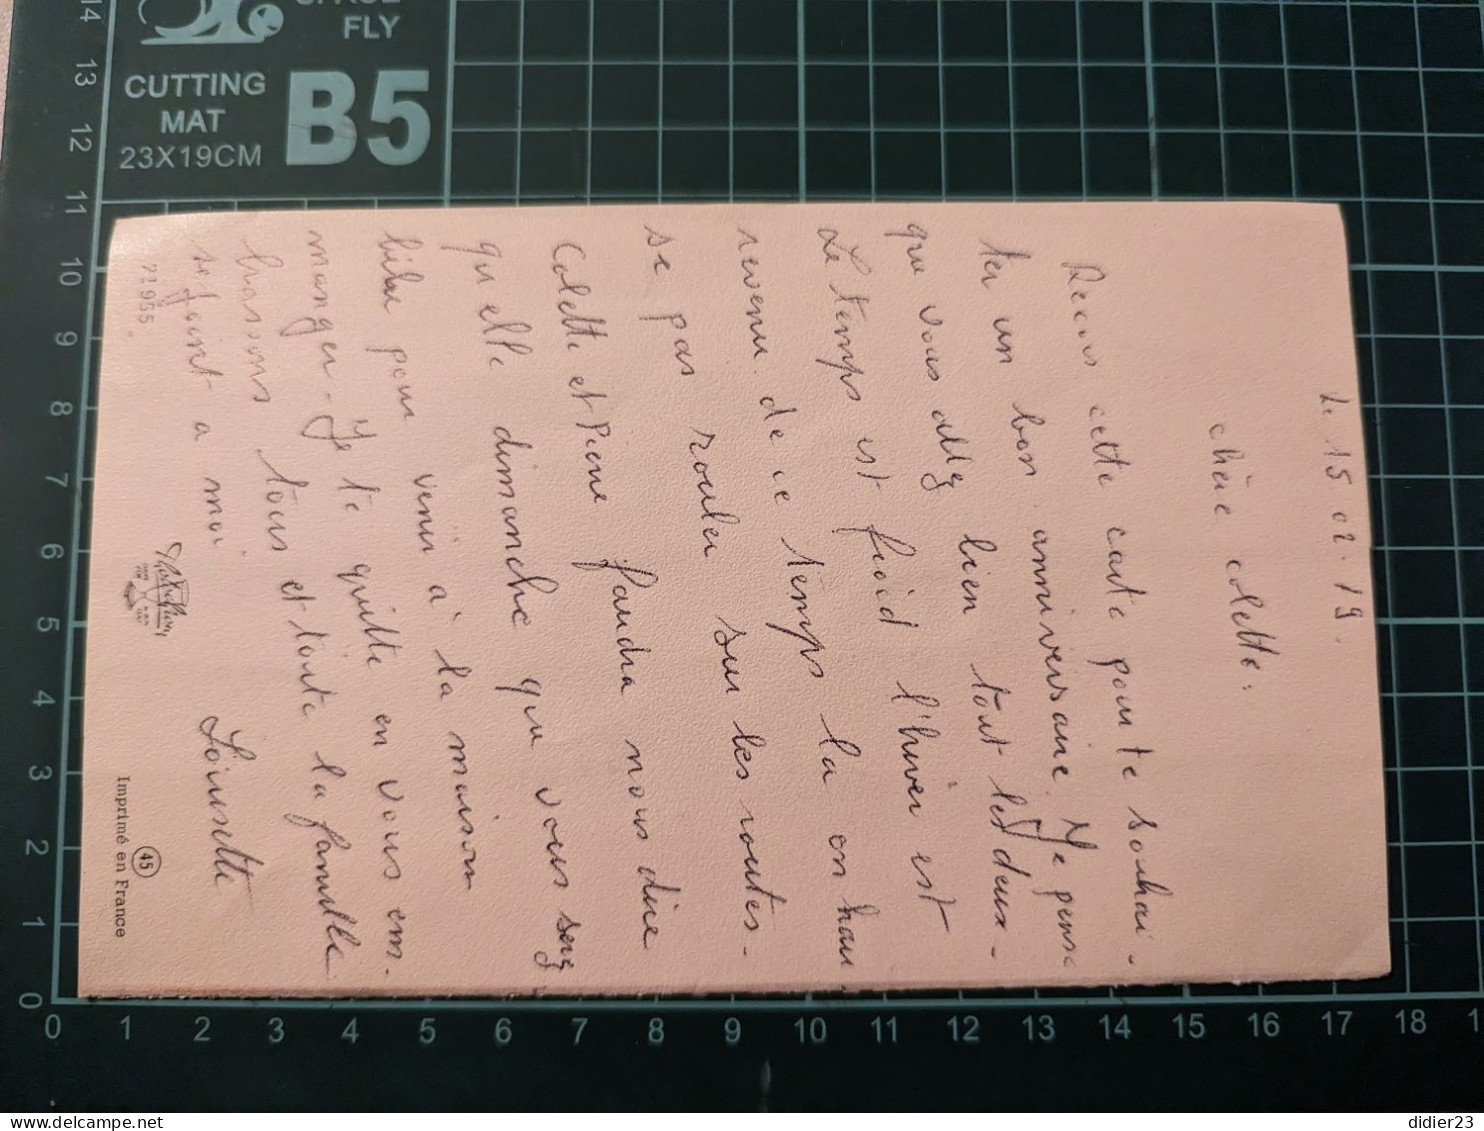 SPACE
FLY
CUTTING
MAT
23X19CM
B5
14
13
12
11
10
9
8
7
6
5
4
3
2
1
0
0 1 2 3 4 5 6 7 8 9 10 11 12 13 14 15 16 17 18 19
Le 15 02. 19.
chère colette:
Recois cette carte pour te souhai-
ter un bon anniversaire. Je pense
que vous allez bien tout les deux-
Le temps est froid l'hiver est
revenu. de ce temps la on
se pas rouler sur les routes-
Colette et Pierre faudra nous dire
qu elle dimanche que vous serez
libre pour venir à la maison
manger- Je te quitte en vous em-
brassons tous et toute la famille
se joint a moi.
Louisette
71955
45
Imprimé en France
delcampe.net
didier23